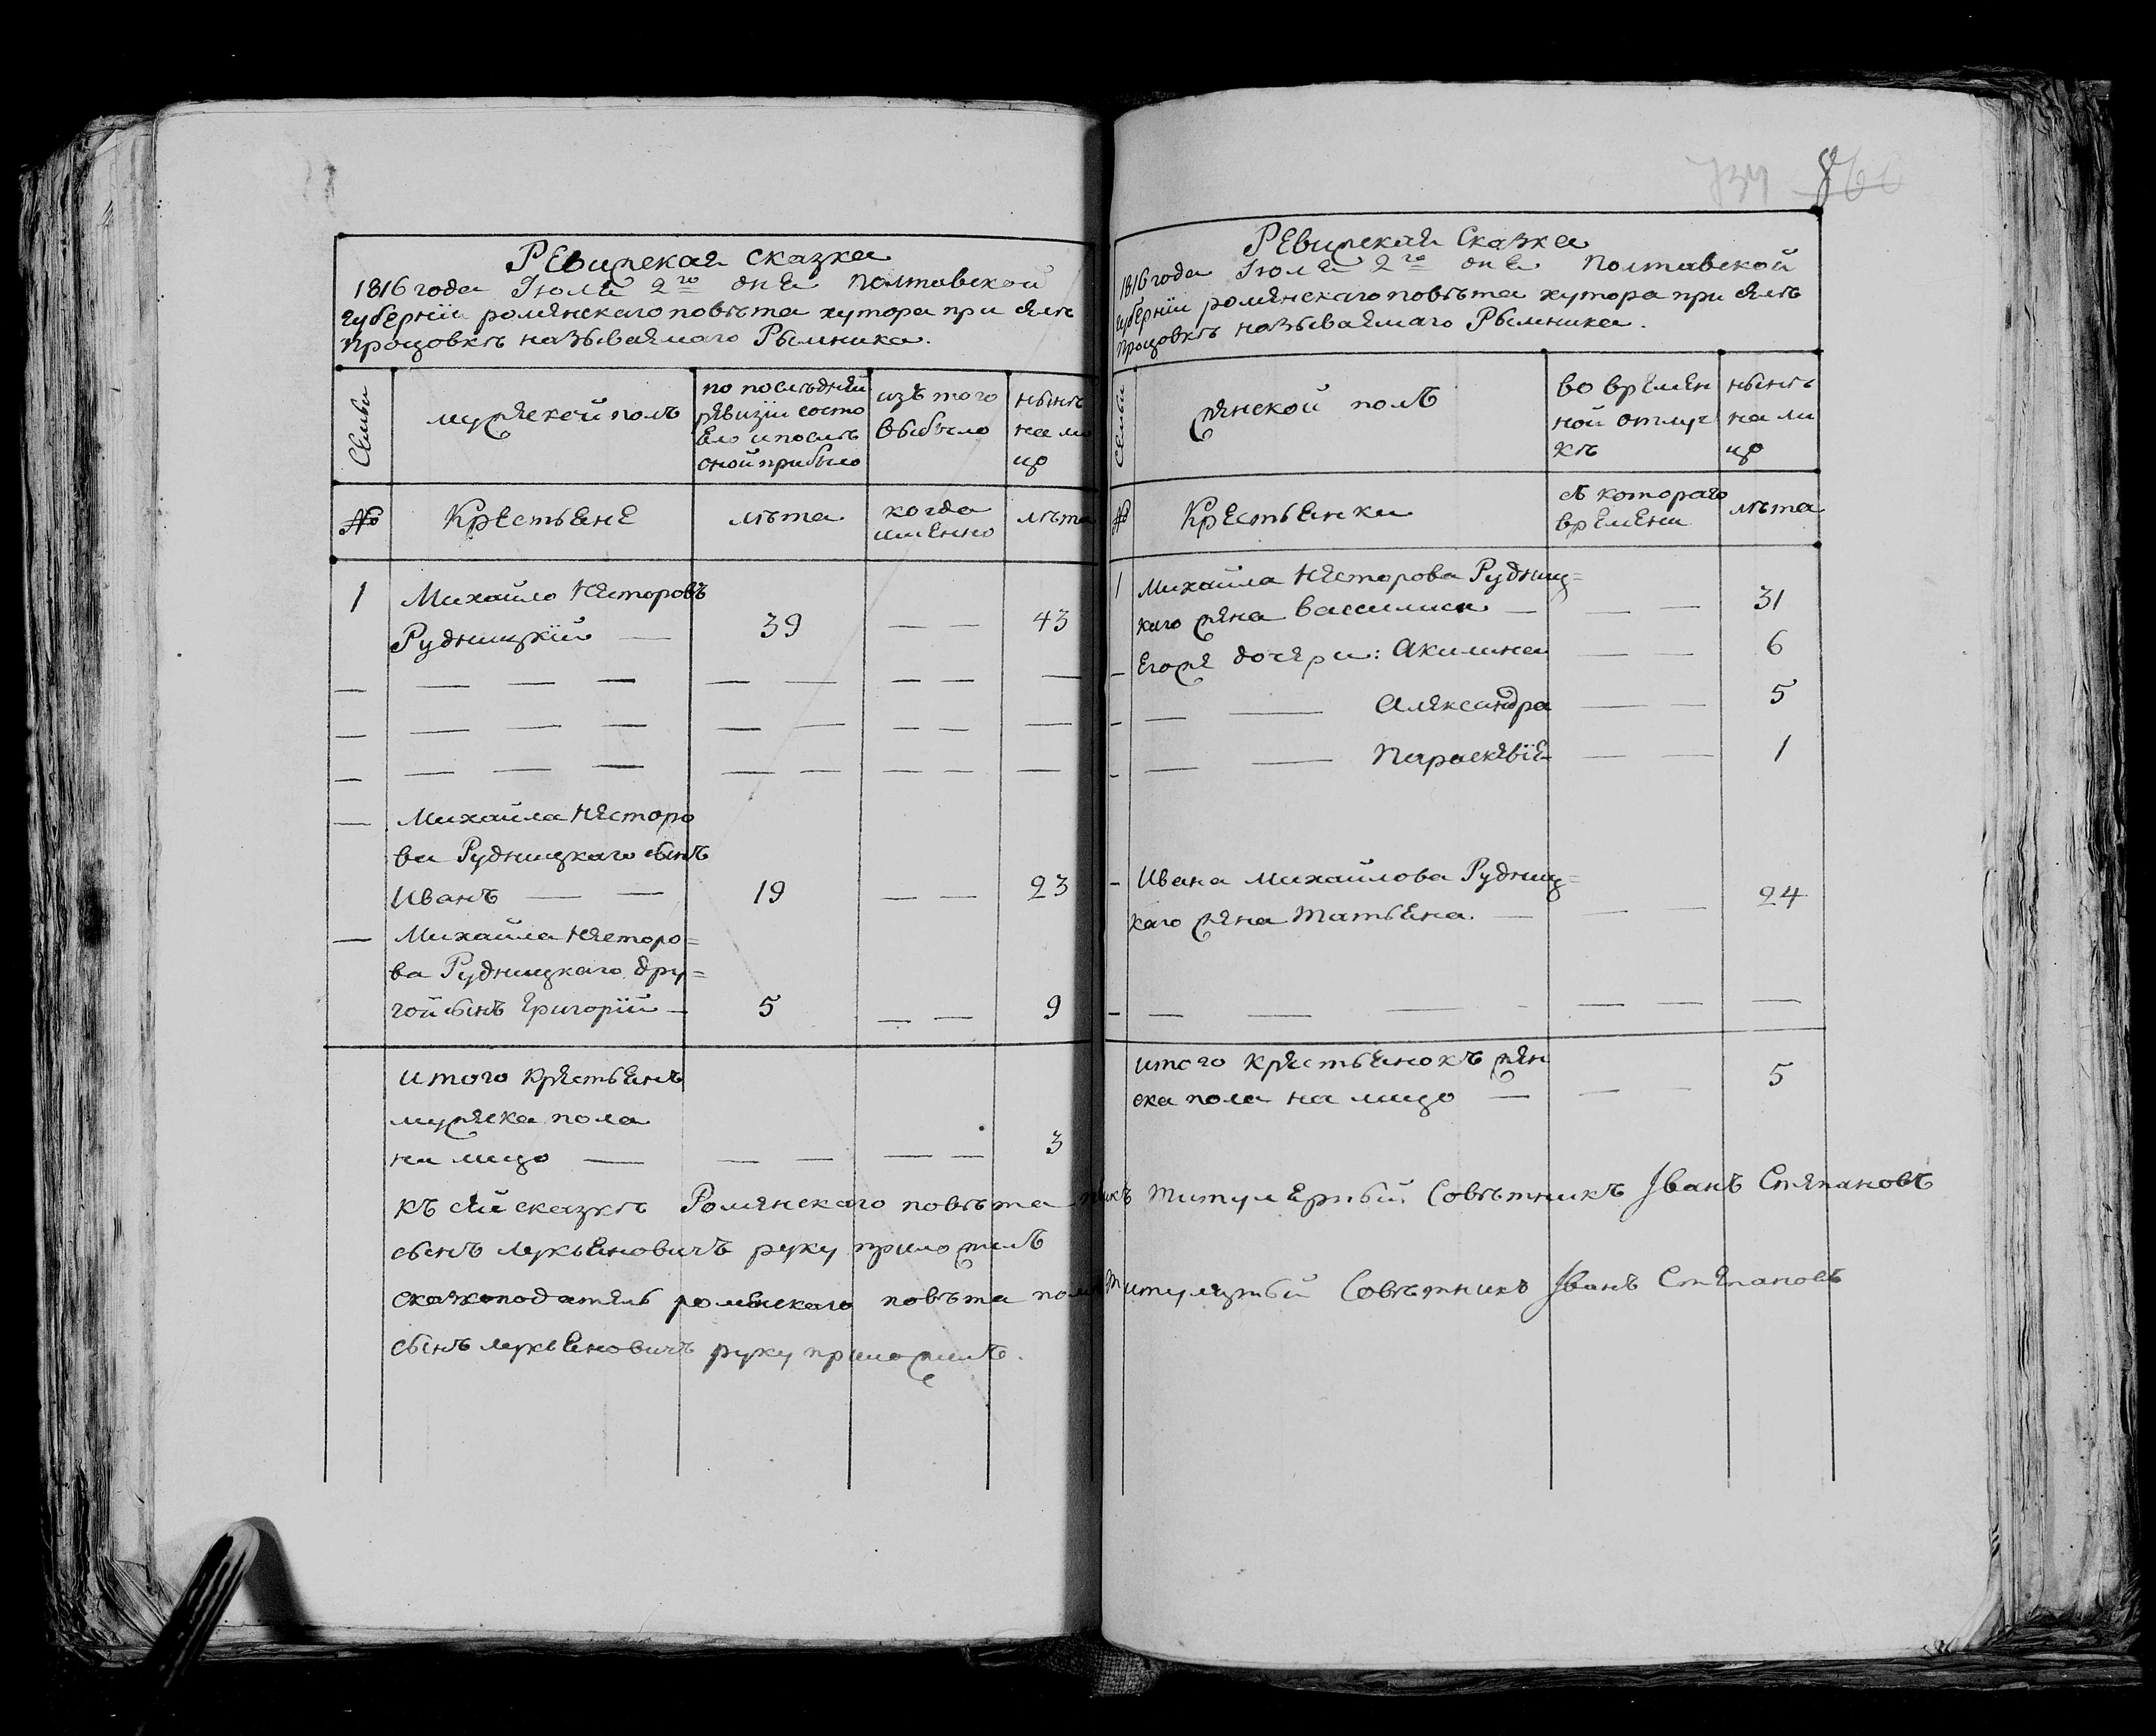 Ревижская сказка
1816 года Іюля 2го дня Полтавской
губерніи роменскаго повѣта хутора при селѣ
Процовкѣ называемаго Рымника.
Семьи
мужескей полъ
по послѣдней
ревизіи состо
яло и послѣ
оной прибыло
изъ того
выбыло
нынѣ
на ли
цо
№
Крестьяне
лѣта
когда
именно
лѣта
1
Михайло Несторовъ
Рудницкій — 39 — — 43
Михайла Несторо
ва Рудницкаго сынъ
Иванъ — — 19 — — 23
Михайла Несторо=
ва Рудницкаго дру=
гой сынъ Григорій — 5 — — 9
итого крестьянъ
мужеска пола
на лицо — — — — — 3
734 860
Ревижская Сказка
1816 года Іюля 2го дня Полтавской
губерніи роменскаго повѣта хутора при селѣ
Процовкѣ называемаго Рымника.
Семьи
женской полъ
во времен
ной отлуч
кѣ
нынѣ
на ли
цо
№
Крестьянки
съ котораго
времени
лѣта
1
Михайла Несторова Рудниц=
каго жена Вассилиса — — — 31
Егоже дочери: Акилина — — 6
Александра — — 5
Параскевія — — 1
Ивана Михайлова Рудниц=
каго жена Татьяна. — — — 24
итого крестьянокъ жен
ска пола на лицо — — — 5
Къ сей сказкѣ Роменскаго повѣта Титулярный Совѣтникъ Іванъ Степановъ
сынъ Лукьяновичъ руку приложилъ
сказкоподатель роменскаго повѣта Титулярный Совѣтникъ Іванъ Степановъ
сынъ Лукьяновичъ руку приложилъ.